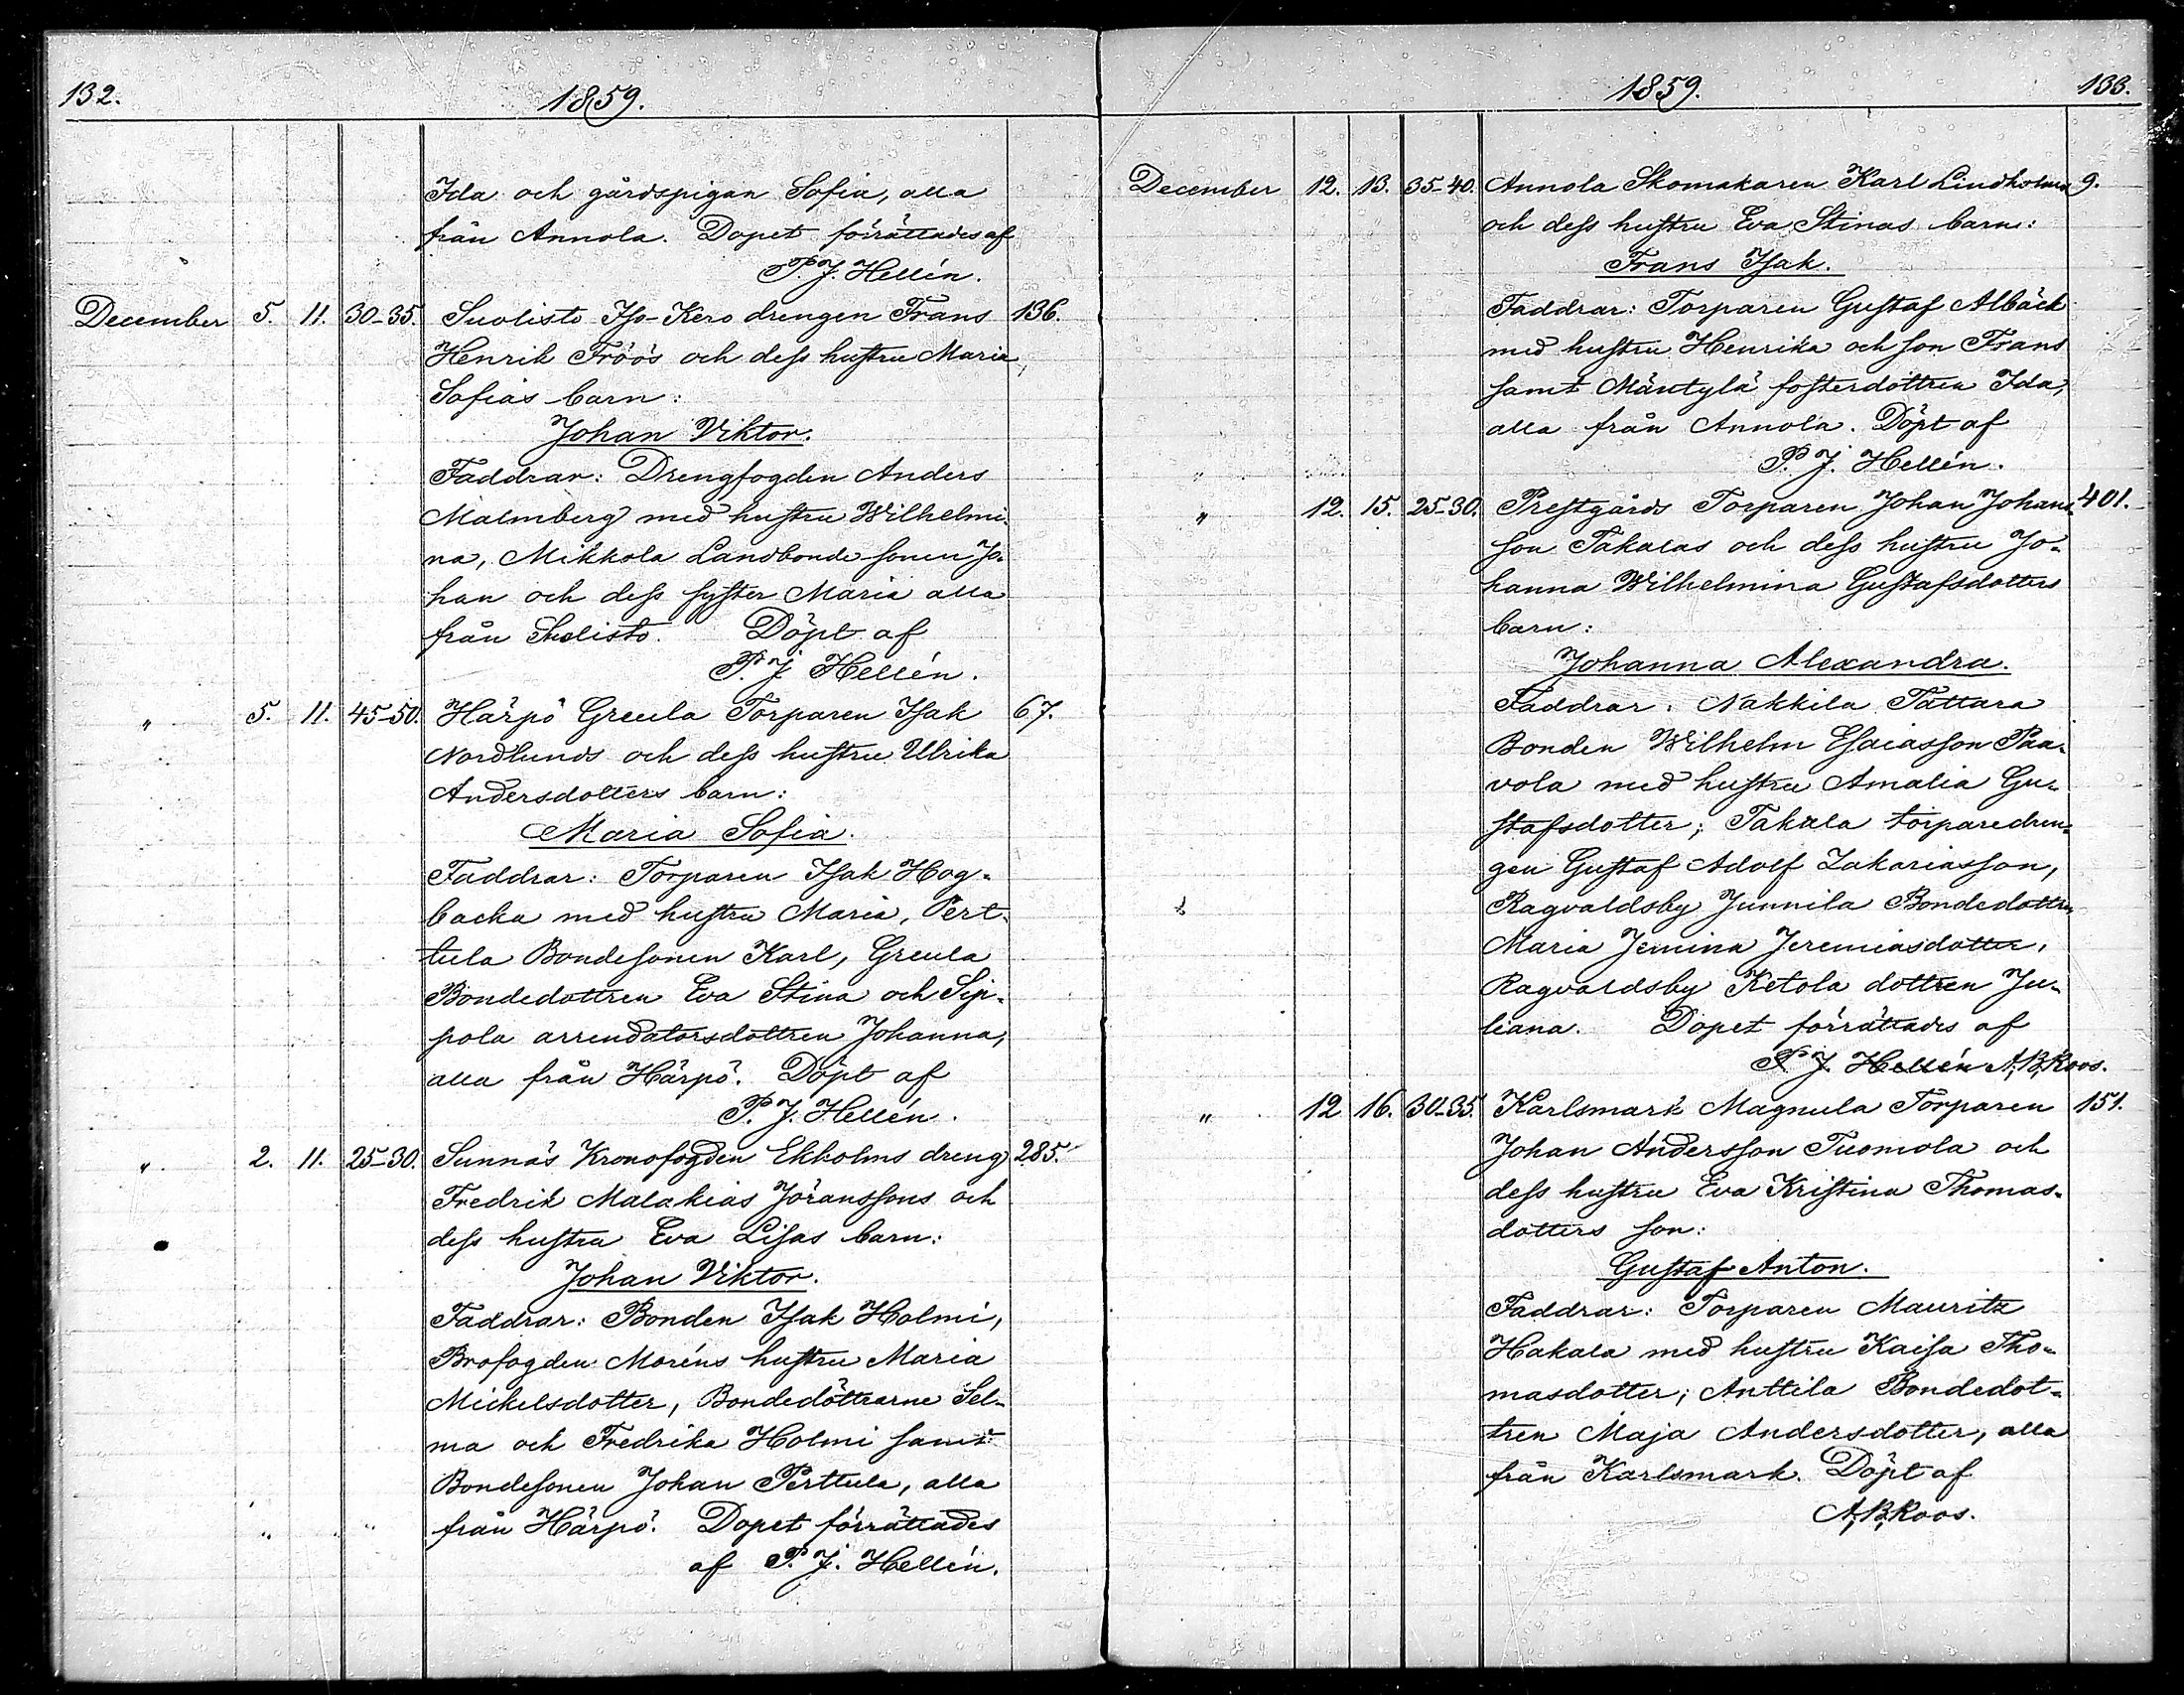 132.
1859.
Ida och gårdspigan Sofia, alla
från Annola. Dopet förrättades af
P. J. Hellén.
December 5. 11. 30-35. Suolisto Iso-Kero drengen Frans 136.
Henrik Fröös och dess hustru Maria
Sofias barn:
Johan Viktor.
Faddrar: Drengfogden Anders
Malmberg med hustru Wilhelmi-
na, Mikkola Landbonde sonen Jo-
han och dess syster Maria alla
från Suolisto. Döpt af
P. J. Hellén.
" 5. 11. 45-50. Härpö Greula Torparen Isak 67.
Nordlunds och dess hustru Ulrika
Andersdotters barn:
Maria Sofia.
Faddrar: Torparen Isak Hog-
backa med hustru Maria, Pert-
tula Bondesonen Karl, Greula
Bondedottren Eva Stina och Sip-
pola arrendatorsdottren Johanna,
alla från Härpö. Döpt af
P. J. Hellén.
" 2. 11. 25-30. Sunnäs Kronofogden Ekholms dreng 285.
Fredrik Malakias Jöranssons och
dess hustru Eva Lisas barn:
Johan Viktor.
Faddrar: Bonden Isak Holmi,
Brofogden Moréns hustru Maria
Mickelsdotter, Bondedöttrarne Sel-
ma och Fredrika Holmi samt
Bondesonen Johan Perttula, alla
från Härpö. Dopet förrättades
af P. J. Hellén.
1859.
133.
December 12. 13. 35-40. Annola Skomakaren Karl Lindholms 9.
och dess hustru Eva Stinas barn:
Frans Isak.
Faddrar: Torparen Gustaf Albäck
med hustru Henrika och son Frans
samt Mäntylä fosterdottren Ida,
alla från Annola. Döpt af
P. J. Hellén.
" 12. 15. 25-30. Prestgårds Torparen Johan Johans- 401.
son Takalas och dess hustru Jo-
hanna Wilhelmina Gustafsdotters
barn:
Johanna Alexandra.
Faddrar: Nakkila Tattara
Bonden Wilhelm Esaiasson Paa-
vola med hustru Amalia Gu-
stafsdotter; Takala torparedren-
gen Gustaf Adolf Zakariasson,
Ragvaldsby Junnila Bondedottren
Maria Jemina Jeremiasdotter,
Ragvaldsby Ketola dottren Ju-
liana. Dopet förrättades af
P. J. Hellén A. B. Roos.
" 12 16. 30-35. Karlsmark Magnula Torparen 151.
Johan Andersson Tuomola och
dess hustru Eva Kristina Thomas-
dotters son:
Gustaf Anton.
Faddrar: Torparen Mauritz
Hakala med hustru Kaisa Tho-
masdotter; Anttila Bondedot-
tren Maja Andersdotter, alla
från Karlsmark. Döpt af
A. B. Roos.